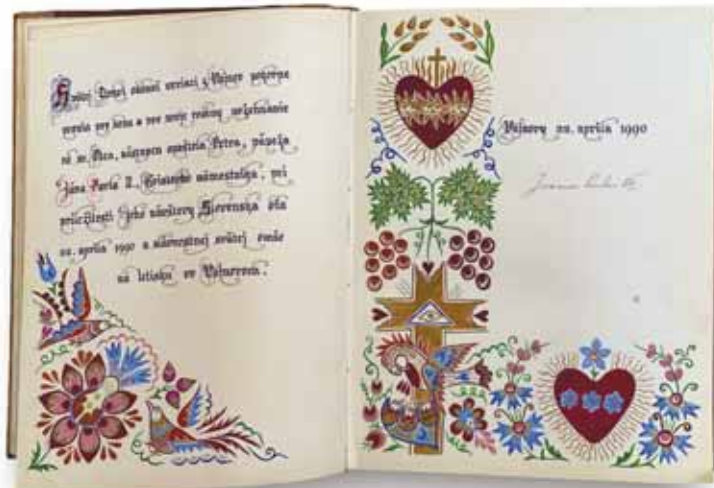 veriaci z Vajnor pokorne
prosia pre seba a pre svoje rodiny
sv. Otca, nástupcu apoštola Petra, pápeža
Jána Pavla II., Kristovho námestníka, pri
príležitosti jeho návštevy Slovenska dňa
22. apríla 1990 a slávnostnej svätej omše
na letisku vo Vajnoroch.
Vajnory 22. apríla 1990